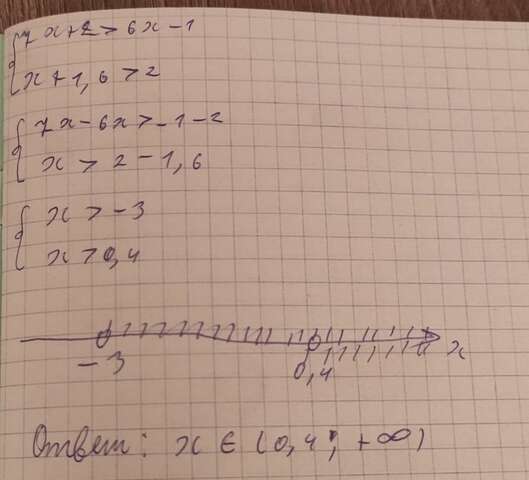 7x+2>6x-1
x+1,6>2
7x-6x>-1-2
x>2-1,6
x>-3
x>0,4
-3 0,4 x
Ответ: x∈(0,4; +∞)